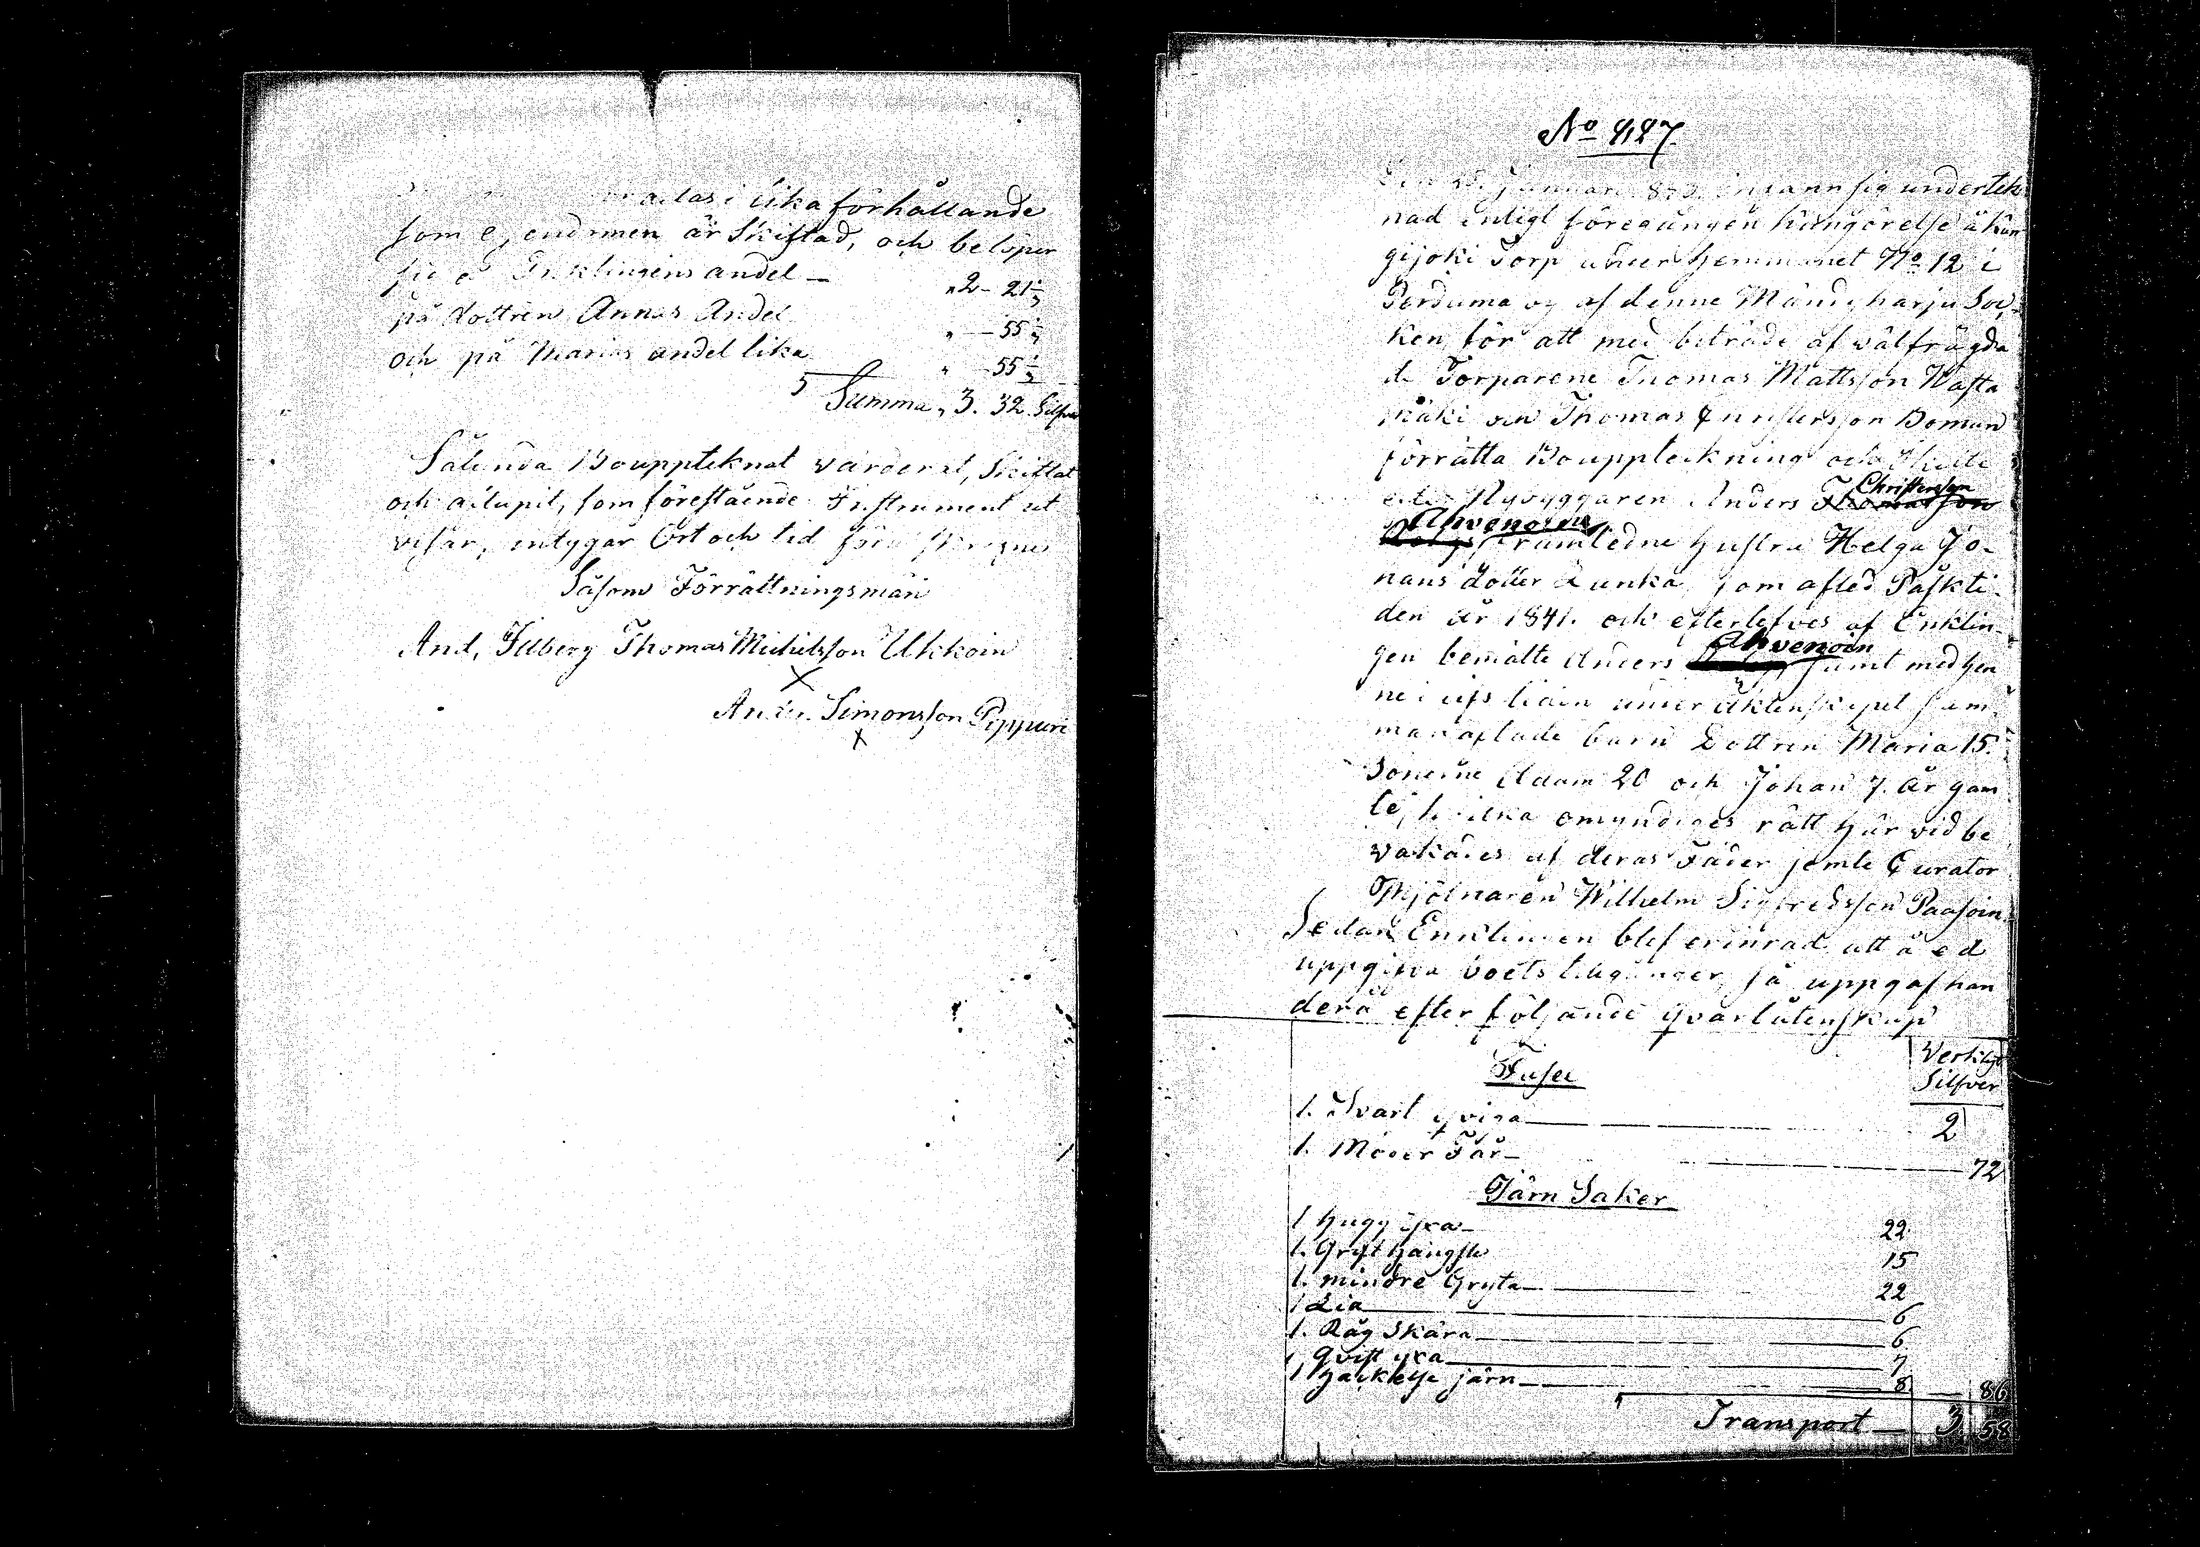 i lika förhållande
som egendomen är skiftad, och belöper
sig å Enklingens andel — " 2 - 21 1/3
på dottren Annas Andel " — 55 1/3
och på Marias andel lika " — 55 1/3
Summa " 3. 32 Silfver
Sålunda Bouppteknat värderat, Skiftat
och aftupit, som förestående Instrument ut
visar, intygar Ort och tid
Såsom Förrättningsmän
And, Idberg Thomas Michelsson Ukkoin
X
Anders Simonsson Pippuri
X
No 427.
Januari infann sig undertek
nad enligt föregången kungörelse å Kan
gijoki Torp under Hemmanet No 12 i
Porduma og af denne Mändyharju Soc-
ken, för att med biträde af välfrägda
de Torparene Thomas Mattsson Wasta
mäki och Thomas Christersson Boman
förrätta Bouppteckning och Skifte
efter Nybyggaren Anders Thomasson Christersson
Ahvenoisens framledne hustru Helga Jo-
nans dotter Lunka, som afled Påskti-
den år 1841. och efterlefves af Enklin-
gen bemälte Anders Ahvenoin samt med hen
ne i lifs tiden under Äktenskapet sam
manaflade barn Dottren Maria 15.
Sönerne Adam 20 och Johan 7. år gam
le, hvilka omyndiges rätt här vid be
vakades af deras Fader jemte Curator
Mjölnaren Wilhelm Sigfredsson Paasoin,
Sedan Enklingen blef erinrad att å ed
uppgifva boets tillgånger, så uppgaf han
derå efter följande qvarlåtenskap
Verklig
Silfver
Fuser
1. Svart qviga — 2
1. Moder Får — 72
Järn Saker
1 Hugg yxa — 22
1. Gryt hängsle 15
1. mindre Gryta — 22
1 Lia — 6
1. Råg Skära — 6
1, Qvist yxa — 7
1 Hackelse järn — 8 — 86
Transport — 3 58